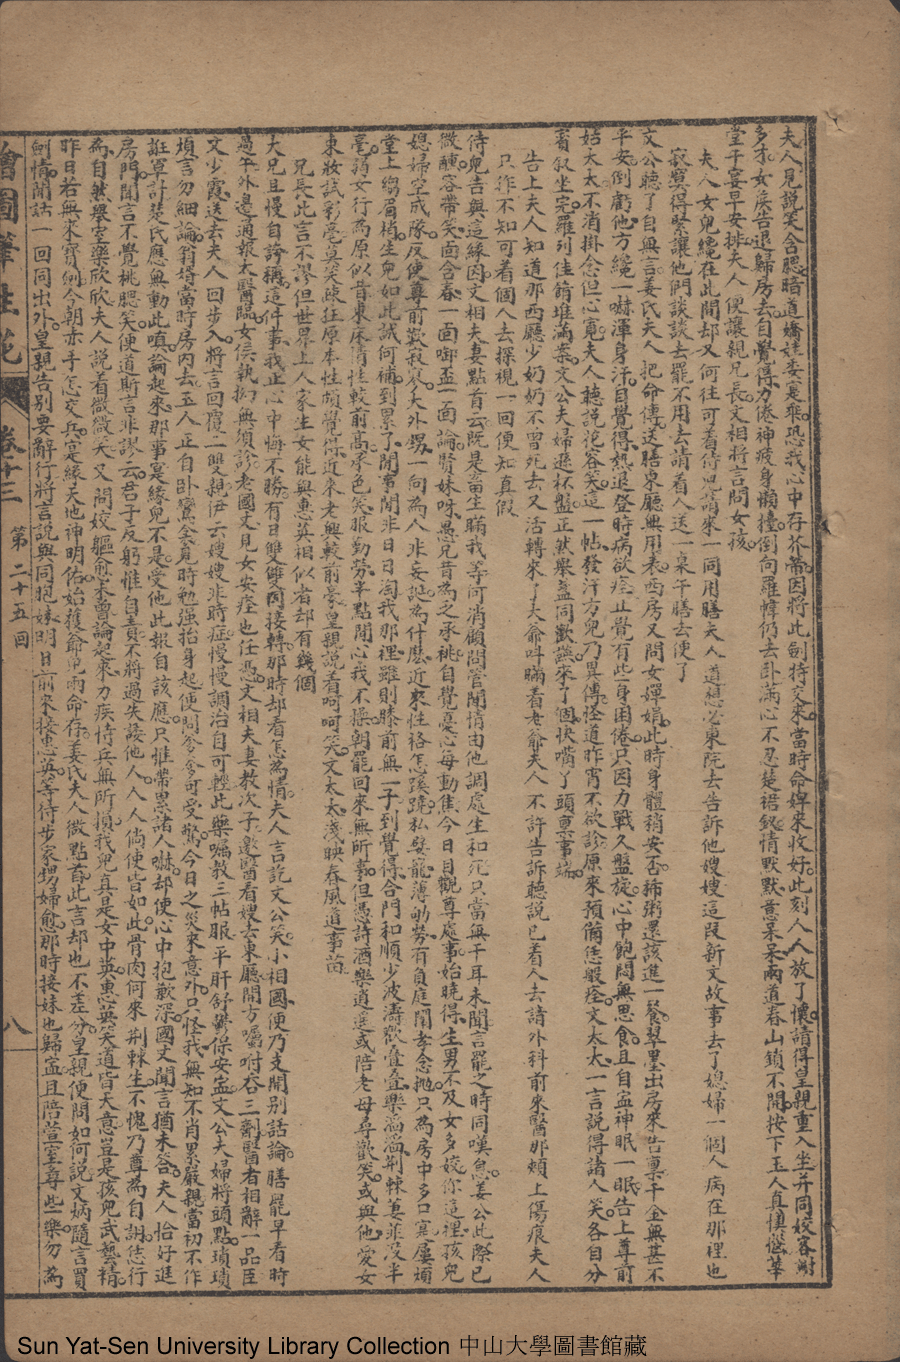 夫人見說笑含腮暗道嬌娃委寔乖恐我心中存芥蒂因將此劍特交來當時命婢來收好此刻人人放了懷請得皇親重入坐并同姣客謝
多才女疾告退歸房去自覺得力倦神疲身懶擡倒向羅幃仍去卧滿心不忍楚裙釵情默默意呆呆兩道春山鎖不開按下玉人真懊惱華
堂午宴早安排夫人便讓親兄長文相將言問女孩
夫人女兒纔在此間却又何往可着侍婢請來一同用膳夫人道想必東院去告訴他嫂嫂這段新文故事去了媳婦一個人病在那裡也
寂寞得緊讓他們談談去罷不用去請着人送一桌午膳去便了
文公聽了自無言姜氏夫人把命傳送膳東廳無用表西房又問女嬋娟此時身體稍安否稀粥還該進一餐翠墨出房來告稟千金無甚不
平安倒虧他方纔一嚇渾身汗自覺得熱退登時病欲痊止覺有些身困倦只因力戰久盤旋心中飽悶無思食且自寍神眠一眠告上尊前
姑太太不消掛念但心寬夫人聽說花容笑這一帖發汗方兒乃異傳怪道昨宵不欲診原來預備恁般痊文太太一言說得諸人笑各自分
賓叙坐完羅列佳餚堆滿案文公夫婦遜杯盤正然舉盞同歡飲來了個快嘴丫頭稟事端
告上夫人知道那西廳少奶奶不曾死去又活轉來了大爺呌瞞着老爺夫人不許告訴聽說已着人去請外科前來醫那頰上傷痕夫人
只作不知可着個人去探視一回便知真假
侍兒言與這緣因文相夫妻點首云既是畜生瞞我等何消顧問管閒情由他調處生和死只當無干耳未聞言罷之時同嘆息姜公此際已
微醺容帶笑面含春一面啣盃一面論賢妹呀愚兄昔為之承祧自覺憂心毋動焦今日目觀尊處事始曉得生男不及女多姣你這裡孩兒
媳婦空成隊反使尊前歎寂寥大外甥一向為人非妄誕為什麽近來性格怎蹊蹺私娶寵薄劬勞有負庭闈孝念拋只為房中多口寔屢煩
堂上縐眉梢生兒如此誠何補到累了閒事閒非日日淘我那裡雖則膝前無一子到覺得合門和順少波濤歡疊疊樂滔滔荆棘萋菲沒半
毫弱女行為原似昔東床情性較前高承色笑服勤勞辛點閒心我不操朝罷回來無所事但憑詩酒樂逍遙或陪老母尋歡笑或與他愛女
東妝試彩毫莫笑疎狂原本性頗覺得近來老興較前豪皇親說着呵呵笑文太太淺映春風道事茴
兄長此言不謬但世界上人家生女能與惠英相似者却有幾個
大兄且慢自誇稱這件事我正心中悔不勝有日雙雙同接轉那時却看怎為情夫人言訖文公笑小相國便乃支開别話論膳罷早看時
過午外邊通報太醫臨女侯執拗無須診老國丈見女安痊也任憑文相夫妻教次子邀醫看嫂去東廳開方囑咐吞三劑醫者相辭一品臣
文少霞送去夫人回步入將言回覆二雙親伊云嫂嫂非時症慢慢調治自可輕此藥囑教三帖服平肝舒鬱保安寍文公夫婦將頭點瑣瑣
煩言勿細論翁壻當時房內去玉人正自卧鸞衾覓時勉强抬身起便問爹爹可受驚今日之災來意外只怪我無知不肖累嚴親當初不作
誑軍計楚氏應無動此嗔論起來那事寔緣兒不是受他此報自該應只惟帶累諸人嚇却使心中抱歉深國丈聞言猶未答夫人恰好進
房門聞言不覺桃腮笑便道斯言非謬云君子反躬惟自責不將過失諉他人人人倘使皆如此骨肉何來荆棘生不愧乃尊為自詡恁行
為自然舉室樂欣欣夫人說着微微笑又問姣軀愈未曾論起來力疾恃兵無所損我兒真是女中英惠英笑道皆天意豈是孩兒武藝精
昨日若無來寶劍今朝赤手怎交兵寔緣天地神明佑始獲爺兒兩命存姜氏夫人微點首此言却也不差分皇親便問如何説文炳隨言買
劍情閒話一回同出外皇親告别要辭行將言說與同抱妹明日前來接惠英等待步家甥婦愈那時接妹也歸寍且陪萱室尋些樂勿為
繪圖筆生花
卷十三
第二十五回
八
Sun Yat-Sen University Library Collection 中山大學圖書館藏